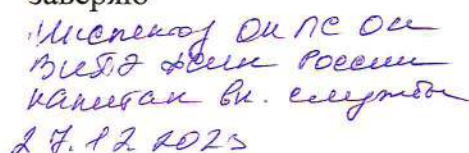 заверяю
Инспектор ОК ЛС ОК
России
капитан вн. службы
27.12.2023